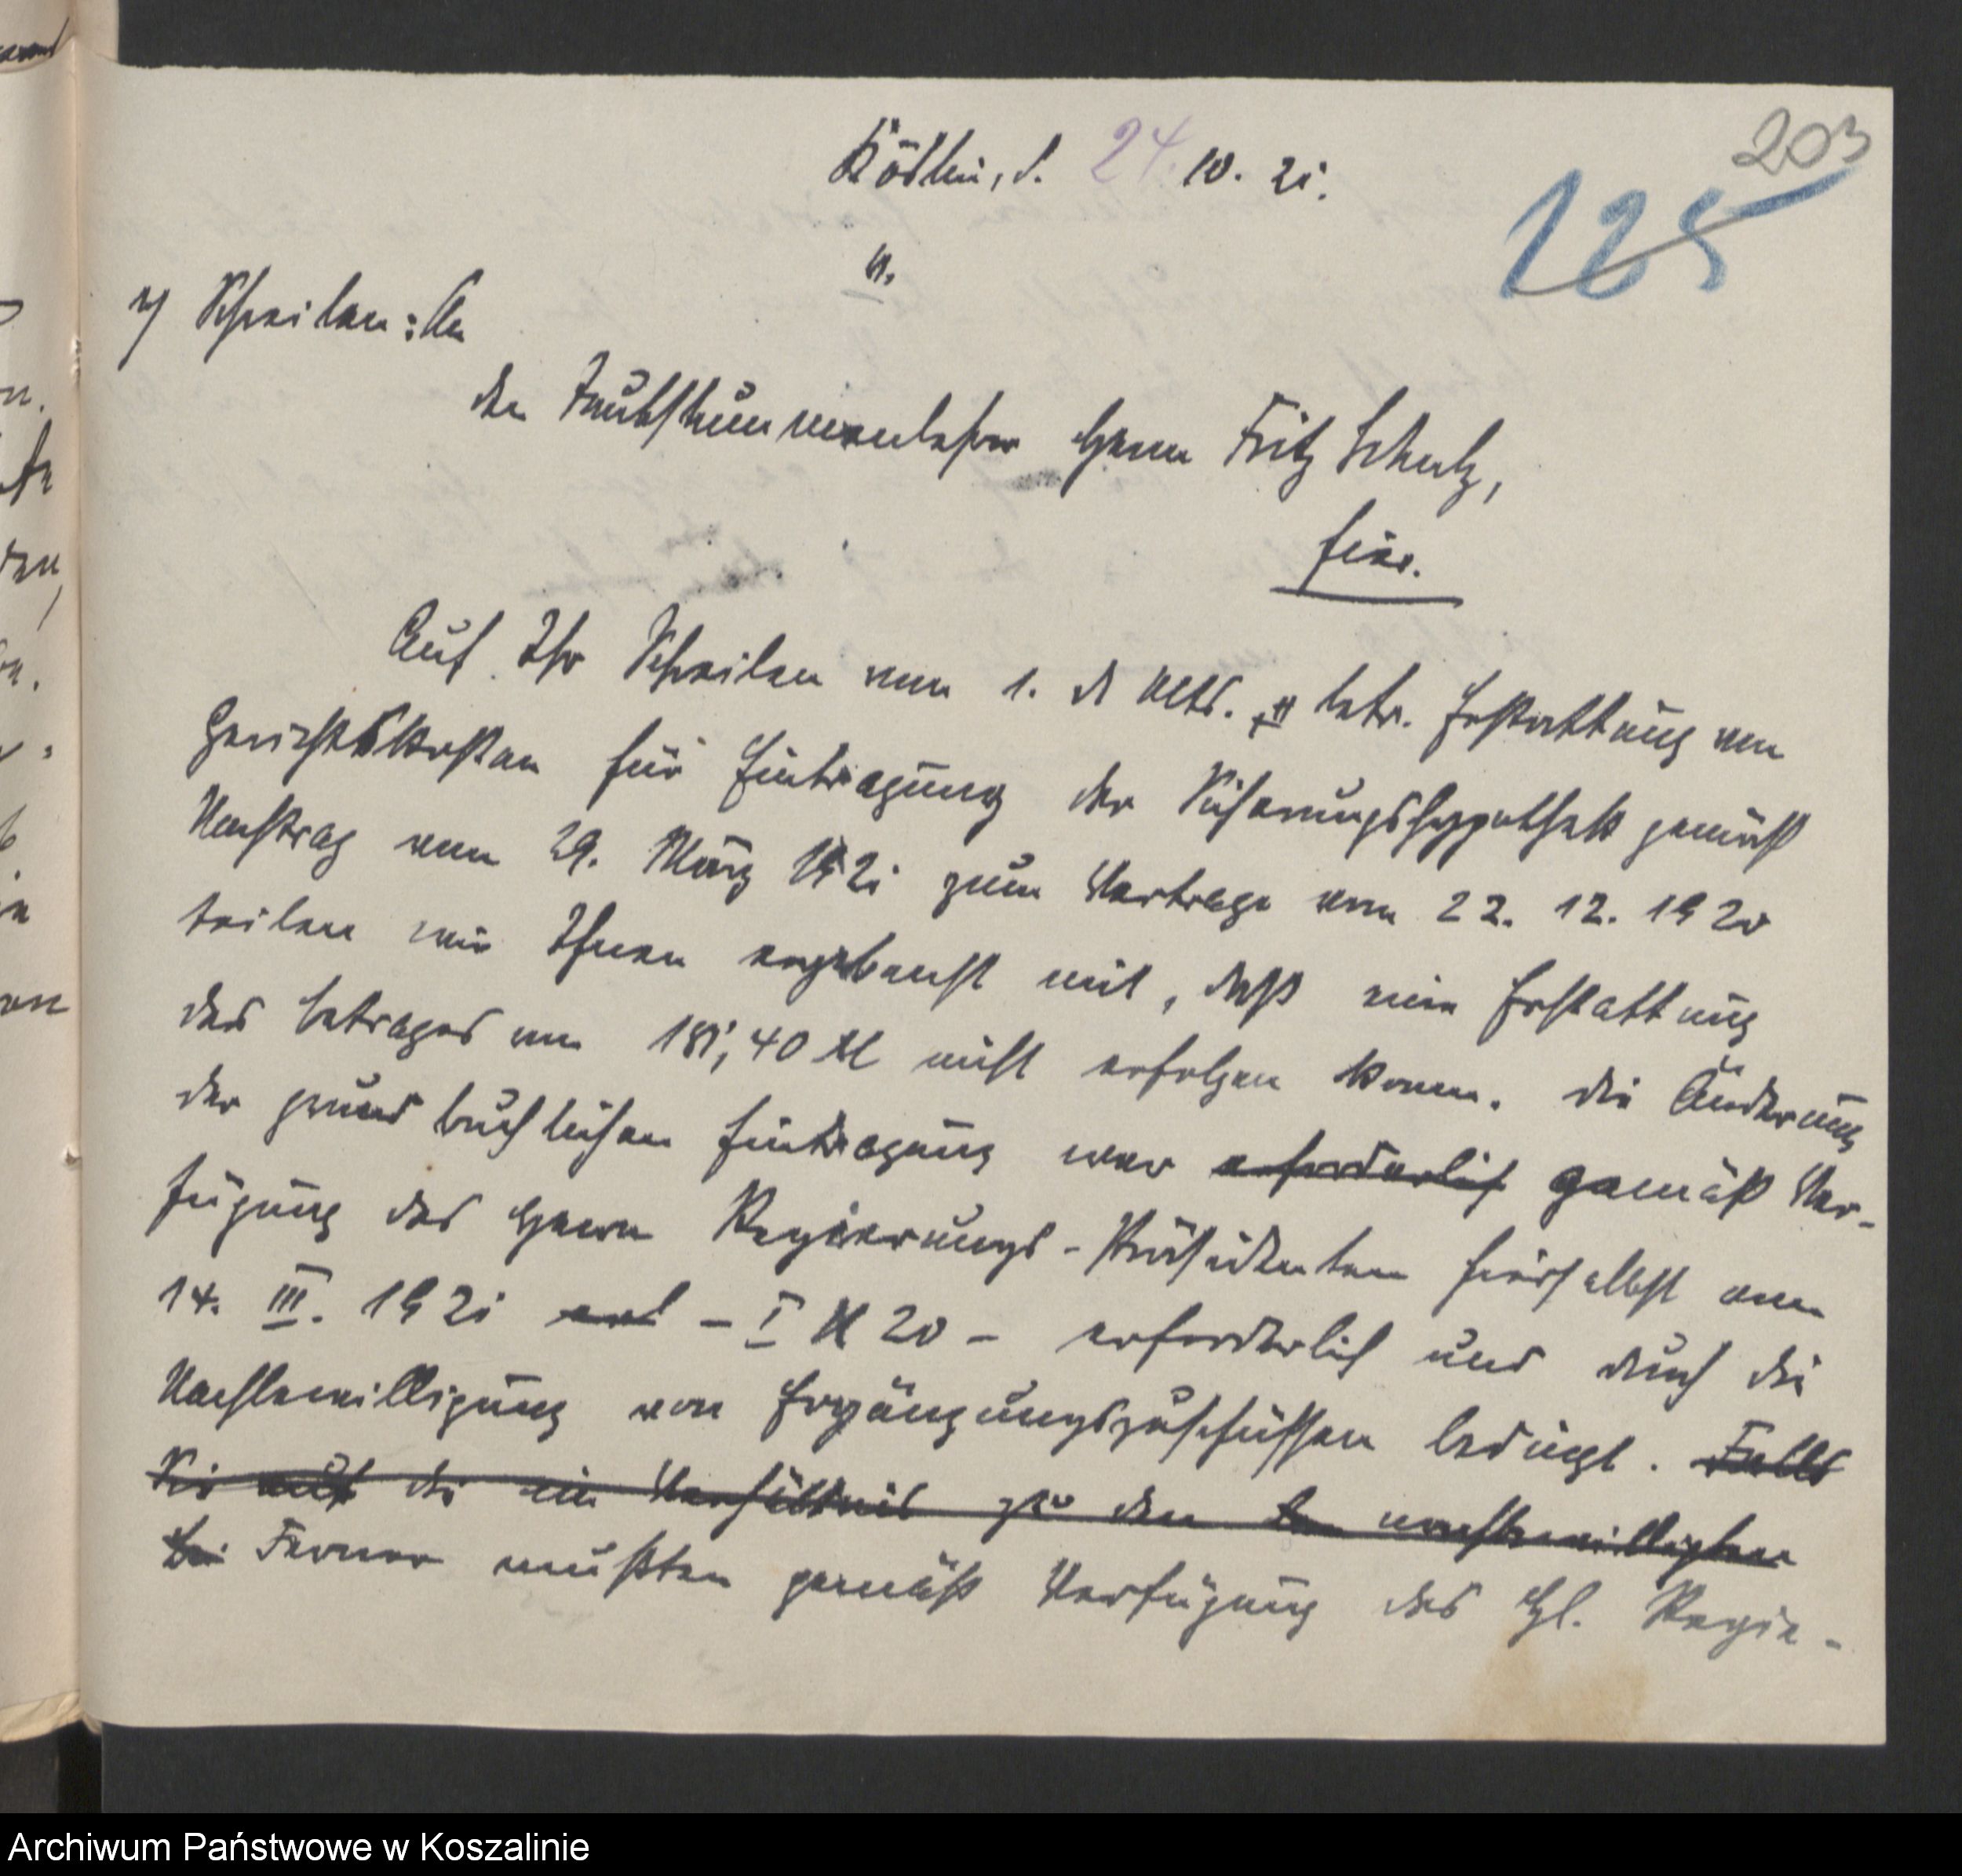 203
125
Köslin, d. 24. 10. 21.
V.
1) Schreiben: An
den Taubstummenlehrer Herrn Fritz Schulz,
hier.
Auf Ihr Schreiben vom 1. d Mts. betr. Erstattung von
Gerichtskosten für Eintragung der Sicherungshypothek gemäß
Nachtrag vom 29. März 1921 zum Vertrage vom 22. 12. 1920
teilen wir Ihnen ergebenst mit, daß eine Erstattung
des Betrages von 181,40 M nicht erfolgen kann. Die Änderung
der grundbuchlichen Eintragung war erforderlich gemäß Ver-
fügung des Herrn Regierungs-Präsidenten hierselbst vom
14. III. 1921 – I M 20 – erforderlich und durch die
Nachbewilligung von Ergänzungszuschüssen bedingt. Falls
Sie auf die im Verhältnis zu den nachbewilligten
Ferner mußten gemäß Verfügung des H. Regie-
Archiwum Państwowe w Koszalinie